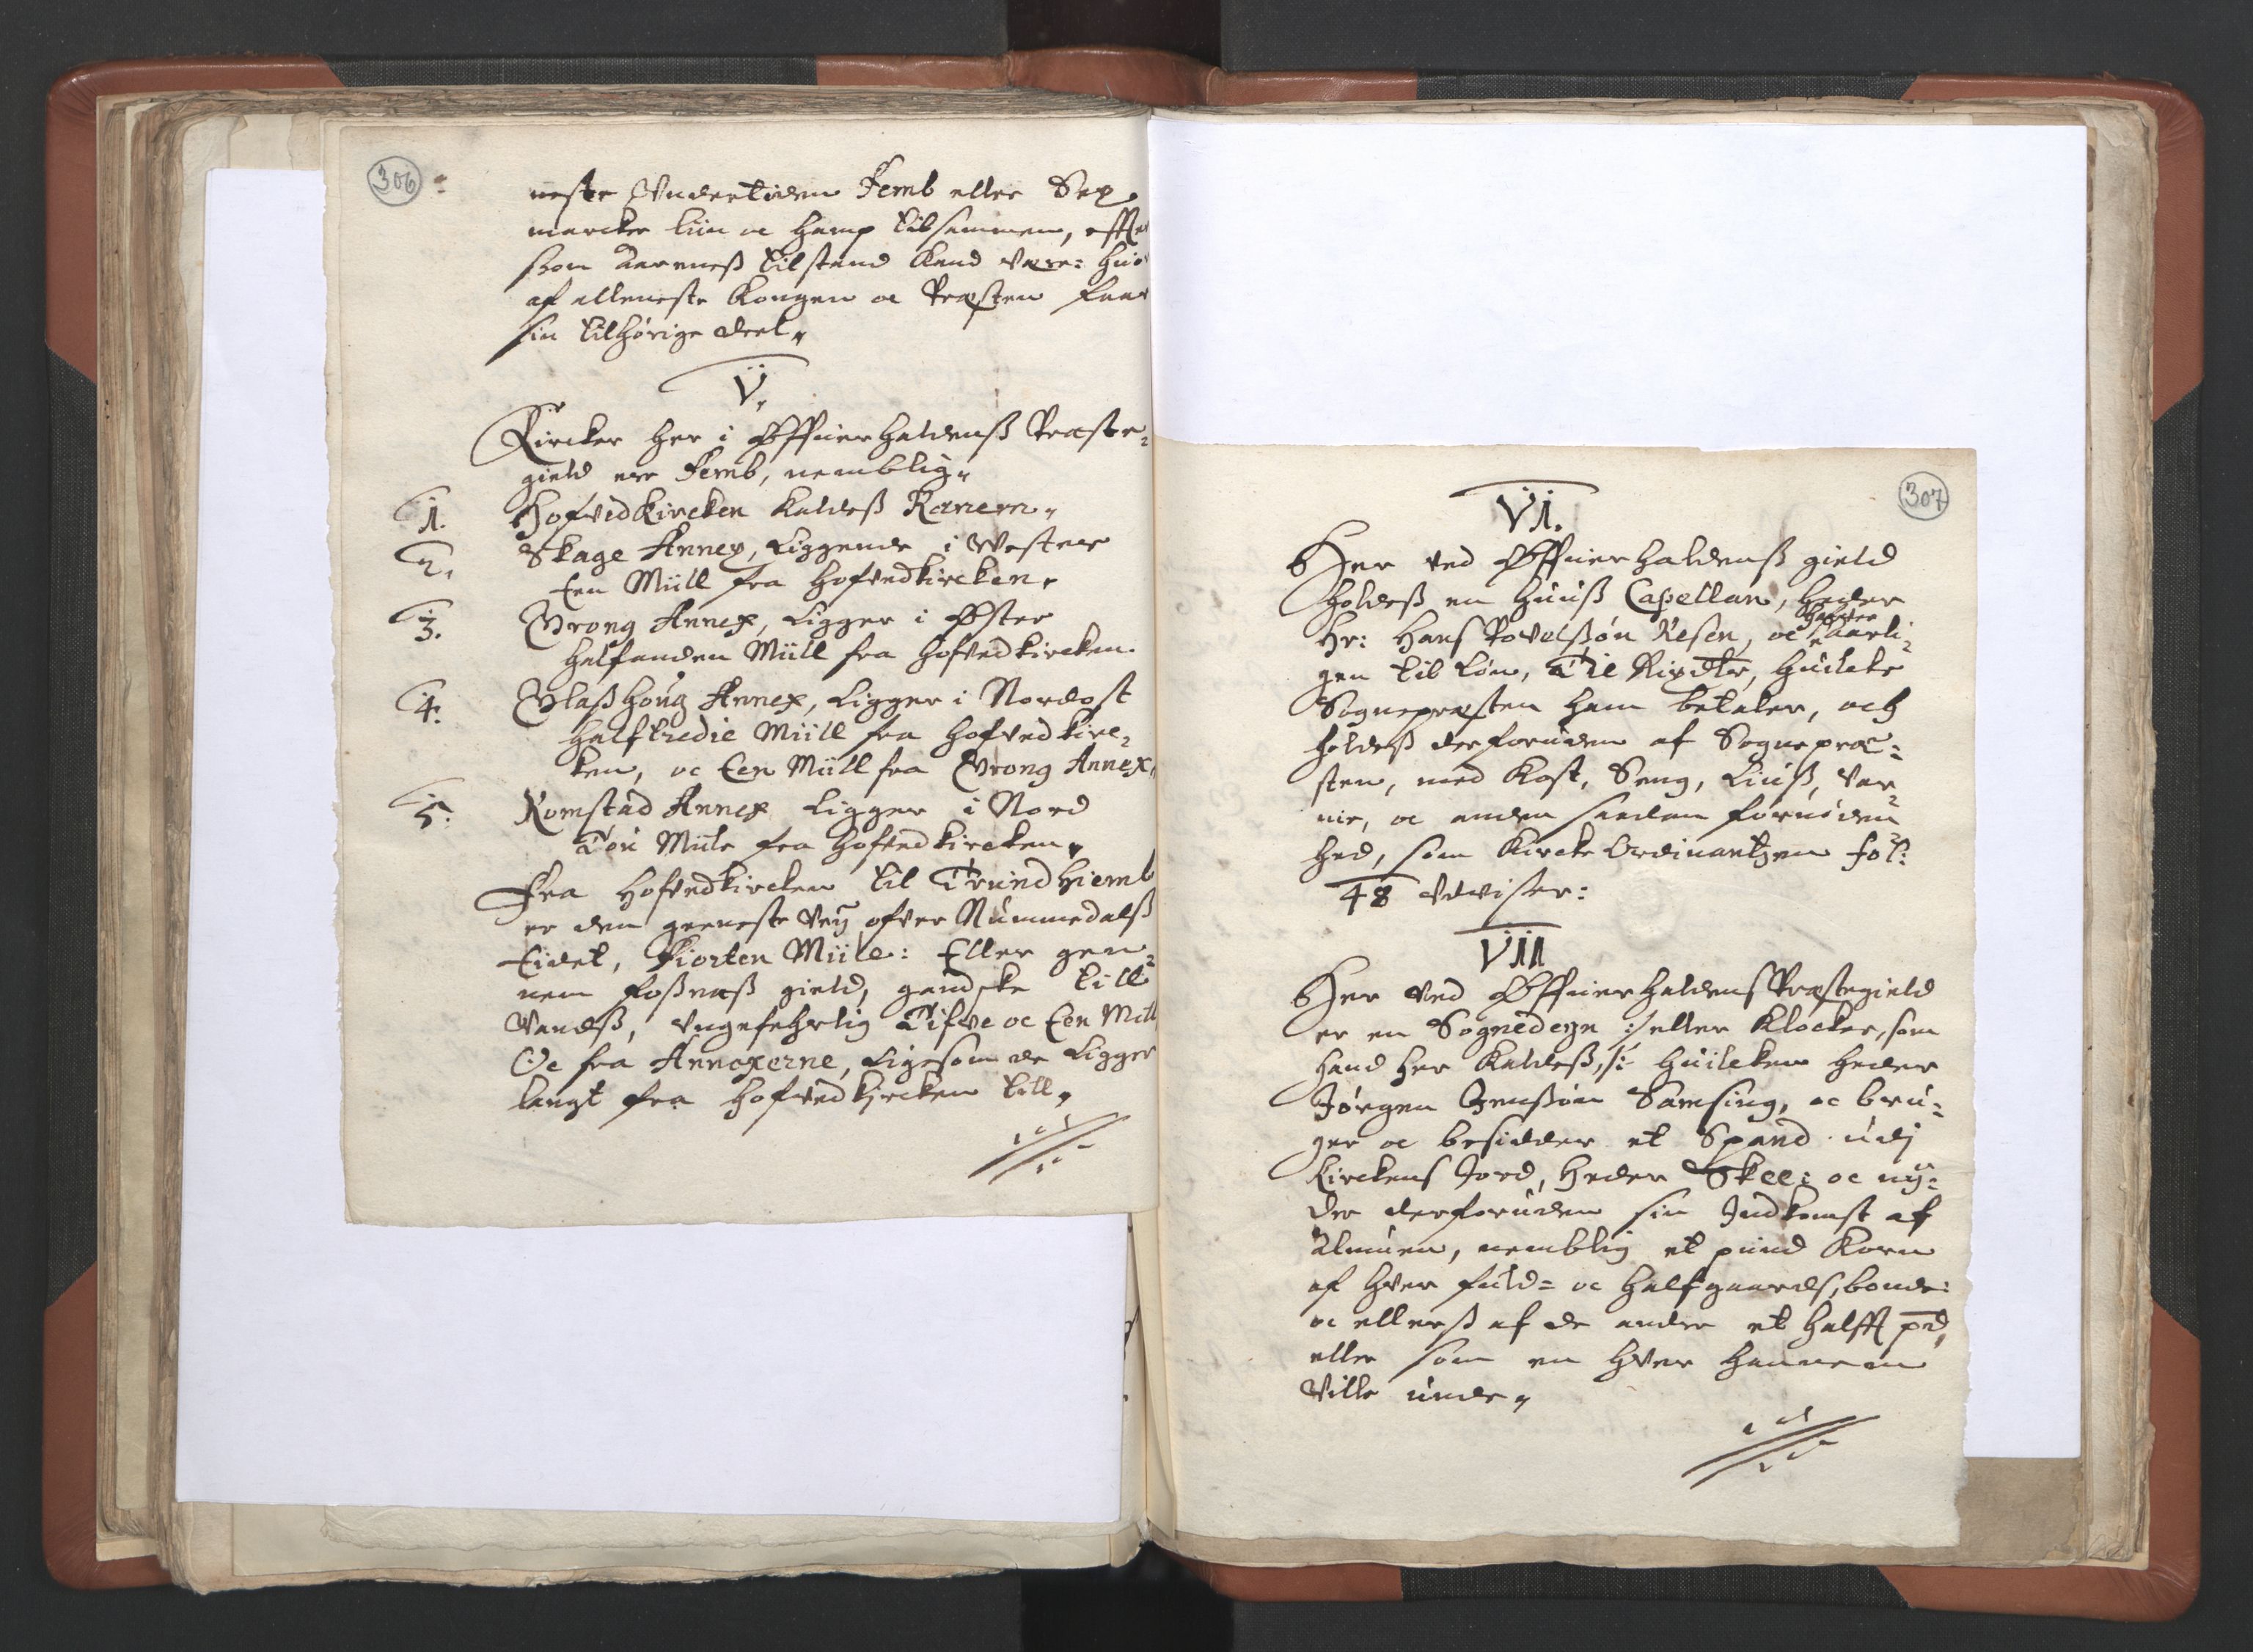 306
neste Vndertiden Femb eller Sex
marcker liin oc hamp tilsammen, effter
som Aarenß tilstand kand være: huor
af alleneste Kongen oc Præsten faar
sin tilhörige deel,
V.
Kircker her i Offuerhaldenß Præste-
gield ere Femb, nemblig,
1. Hofvedkircken kaldeß Ranem,
2. Skage Annex, Liggende i Wester
Een Miill fra hofvedkircken,
3. Vrong Annex, Ligger i Öster
halfanden Miill fra hofvedkircken.
4. Vlaßhöug Annex, Ligger i Nordost
halftredie Miill fra hofvedkirc-
ken, oc Een Miill fra Vrong Annex,
5. Komstad Annex Ligger i Nord
Toü Miile fra hofvedkircken,
Fra Hofvedkircken til Trundhiemb
er den geeneste Veÿ ofver Nummedalß
Eidet, Fiorten Miile: Eller gen-
nem Foßneß gield, gandske till
Vandß, vngefehrlig Tifve oc Een Miil
Oc fra Annexerne, Ligesom de Ligger
langt fra hofvedkircken till,
307
VI.
Her ved Offuerhaldenß gield
holdeß en Huuß Capellan, heder
Hr: Hans Povelßön Resen, oc hafver Aarli-
gen til Lön, Tie Rixdlr, huilcke
Sognepræsten ham betaler, och
holdeß der foruden af Sognepræ-
sten, med Kost, Seng, Liuß, Var-
me, oc anden saadan fornöden
hed, som Kircke Ordinantzen fol:
48 vdviser:
VII
Her ved Offuerhaldens Præstegield
er en Sognedegn :/ eller Klocker, som
hand her kaldeß, /: huilcken heder
Jörgen Jenßön Samsing, oc bru-
ger oc besidder et Spand udj
Kirckens Jord, heder Skee: oc nÿ-
der der foruden sin Indkomst af
Almuen, nemblig et pund Korn
af hver fuld= oc halfgaards, bonde:
oc ellerß af de andre et halfft pd,
eller som en hver hannem
Ville unde,